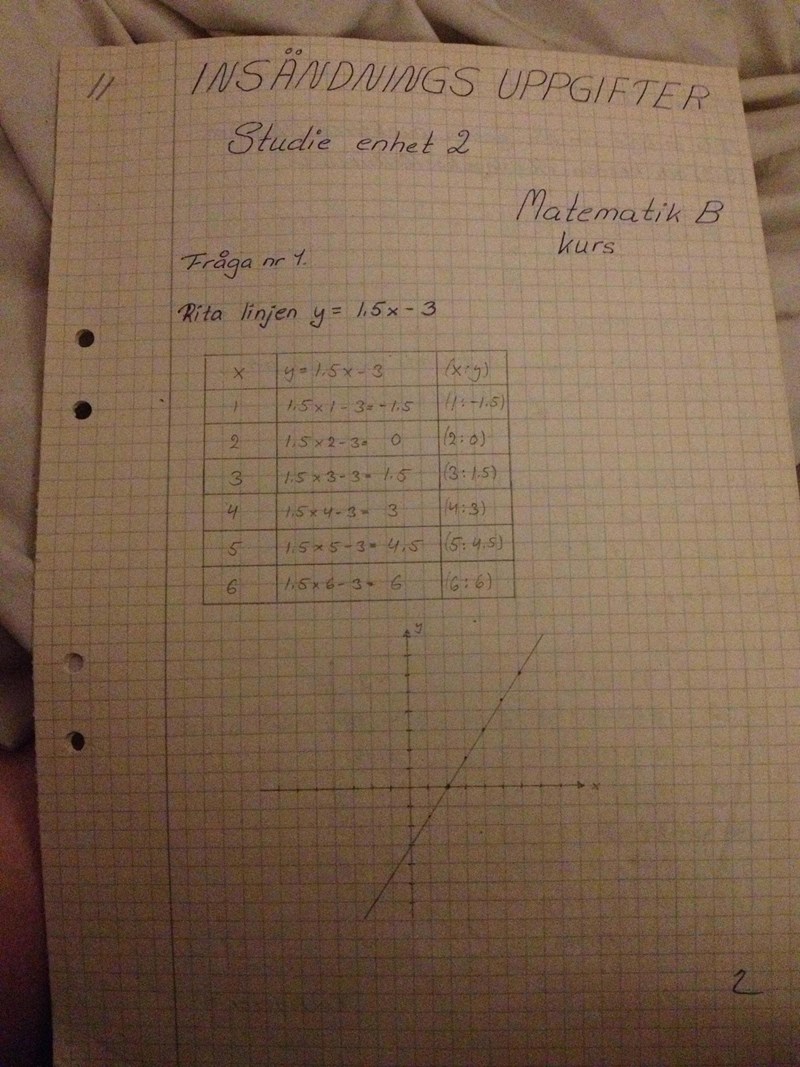 11
INSÄNDNINGS UPPGIFTER
Studie enhet 2
Matematik B
kurs
Fråga nr 1.
Rita linjen y = 1,5x - 3
x y = 1,5x - 3 (x:y)
1 1.5 x 1 - 3 = -1.5 (1: -1.5)
2 1.5 x 2 - 3 = 0 (2: 0)
3 1.5 x 3 - 3 = 1.5 (3: 1.5)
4 1.5 x 4 - 3 = 3 (4: 3)
5 1.5 x 5 - 3 = 4,5 (5: 4.5)
6 1.5 x 6 - 3 = 6 (6: 6)
y
x
2